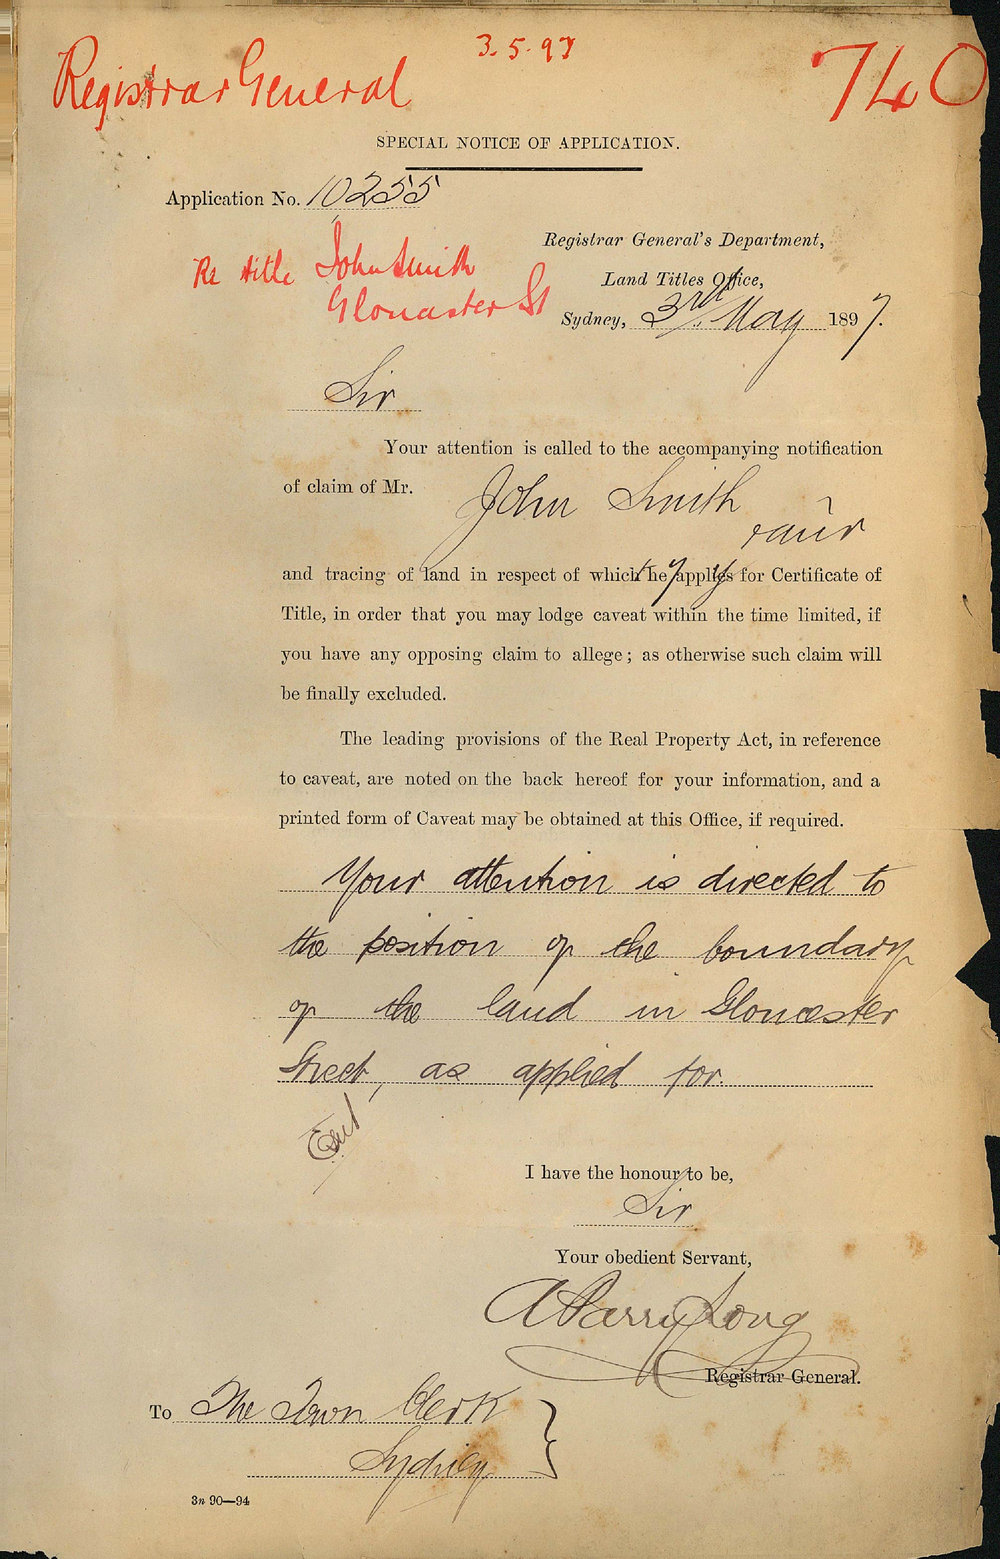 Registrar General
3.5.97
740
SPECIAL NOTICE OF APPLICATION.
Application No. 10255
Re title John Smith
Gloucester St
Registrar General's Department,
Land Titles Office,
Sydney, 3rd May 1897.
Sir
Your attention is called to the accompanying notification
of claim of Mr. John Smith
and tracing of land in respect of which he applies for Certificate of
Title, in order that you may lodge caveat within the time limited, if
you have any opposing claim to allege; as otherwise such claim will
be finally excluded.
The leading provisions of the Real Property Act, in reference
to caveat, are noted on the back hereof for your information, and a
printed form of Caveat may be obtained at this Office, if required.
Your attention is directed to
the position of the boundary
of the land in Gloucester
Street, as applied for.
I have the honour to be,
Sir
Your obedient Servant,
Registrar General.
To The Town Clerk
Sydney
3n 90—94